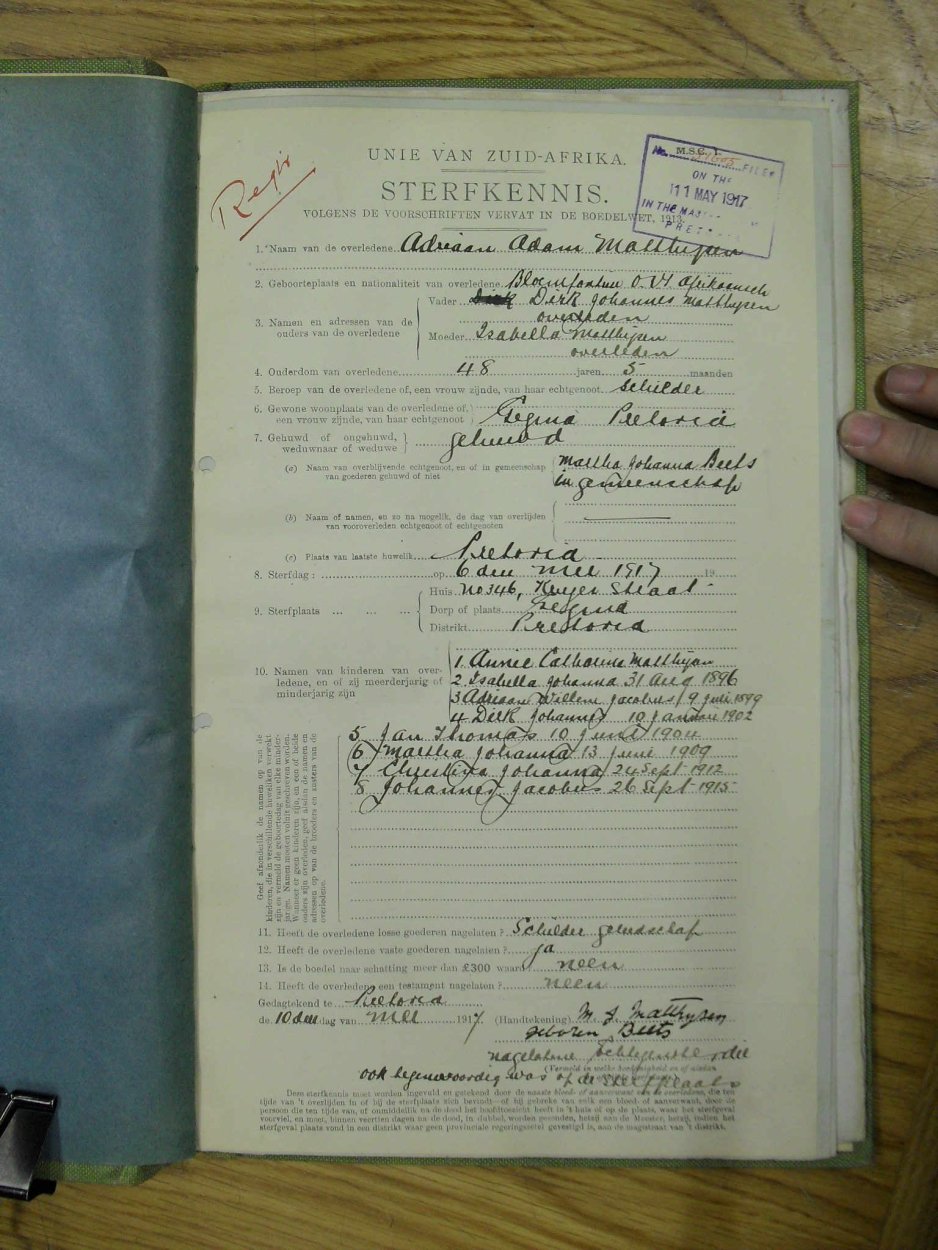 Regr
UNIE VAN ZUID-AFRIKA.
M.S.C. 1.
No. FILED
ON THE
11 MAY 1917
IN THE MAS
PRET
STERFKENNIS.
VOLGENS DE VOORSCHRIFTEN VERVAT IN DE BOEDELWET, 1913.
1. Naam van de overledene Adriaan Adam Matthysen
2. Geboorteplaats en nationaliteit van overledene Bloemfontein O.V.S Afrikaansch
3. Namen en adressen van de ouders van de overledene
Vader Dirk Johannes Matthysen
overleden
Moeder Isabella Matthysen
overleden
4. Ouderdom van overledene 48 jaren 5 maanden
5. Beroep van de overledene of, een vrouw zijnde, van haar echtgenoot Schilder
6. Gewone woonplaats van de overledene of,
een vrouw zijnde, van haar echtgenoot Gezina Pretoria
7. Gehuwd of ongehuwd,
weduwnaar of weduwe gehuwd
(a) Naam van overblijvende echtgenoot, en of in gemeenschap Martha Johanna Beets
van goederen gehuwd of niet in gemeenschap
(b) Naam of namen, en zo na mogelik, de dag van overlijden
van vooroverleden echtgenoot of echtgenoten
(c) Plaats van laatste huwelik Pretoria
8. Sterfdag : op 6 den Mei 1917 19
9. Sterfplaats ... ... ...
Huis No 346, Straat
Dorp of plaats Gezina
Distrikt Pretoria
10. Namen van kinderen van over-
ledene, en of zij meerderjarig of
minderjarig zijn
1. Annie Catharina Matthysen
2 Isabella Johanna 31 Aug 1896
3 Adriaan Willem Jacobus 9 Juni 1899
4 Dirk Johannes 10 Januari 1902
5 Jan Thomas 10 Juni 1904
6 Martha Johanna 13 Junie 1909
7 Christina Johanna 24 Sept 1912
8 Johannes Jacobus 26 Sept 1915
Geef afzonderlik de namen op van de
kinderen, die in verschillende huweliken verwekt
zijn en vermeld de geboortedag van elke minder-
jarige. Namen moeten voluit geschreven worden.
Wanneer er geen kinderen zijn, en een of beide
ouders zijn overleden, geef alsdan de namen en
adressen op van de broeders en zusters van de
overledene.
11. Heeft de overledene losse goederen nagelaten ? Schilder
12. Heeft de overledene vaste goederen nagelaten ? ja
13. Is de boedel naar schatting meer dan £300 waard neen
14. Heeft de overledene een testament nagelaten ? neen
Gedagtekend te Pretoria
de 10 den dag van Mei 1917 (Handtekening) M J Matthysen
geboren Beets
nagelatene
ook tegenwoordig was op de sterfplaats
Deze sterfkennis moet worden ingevuld en getekend door de naaste bloed- of aanverwant van de overledene, die ten
tijde van 't overlijden in of bij de sterfplaats zich bevindt—of bij gebreke van zulk een bloed- of aanverwant, door de
persoon die ten tijde van, of onmiddellik na de dood het hoofdtoezicht heeft in 't huis of op de plaats, waar het sterfgeval
voorviel, en moet, binnen veertien dagen na de dood, in dubbel, worden gezonden, hetzij aan de Meester, hetzij, indien het
sterfgeval plaats vond in een distrikt waar geen provinciale regeringszetel gevestigd is, aan de magistraat van 't distrikt.